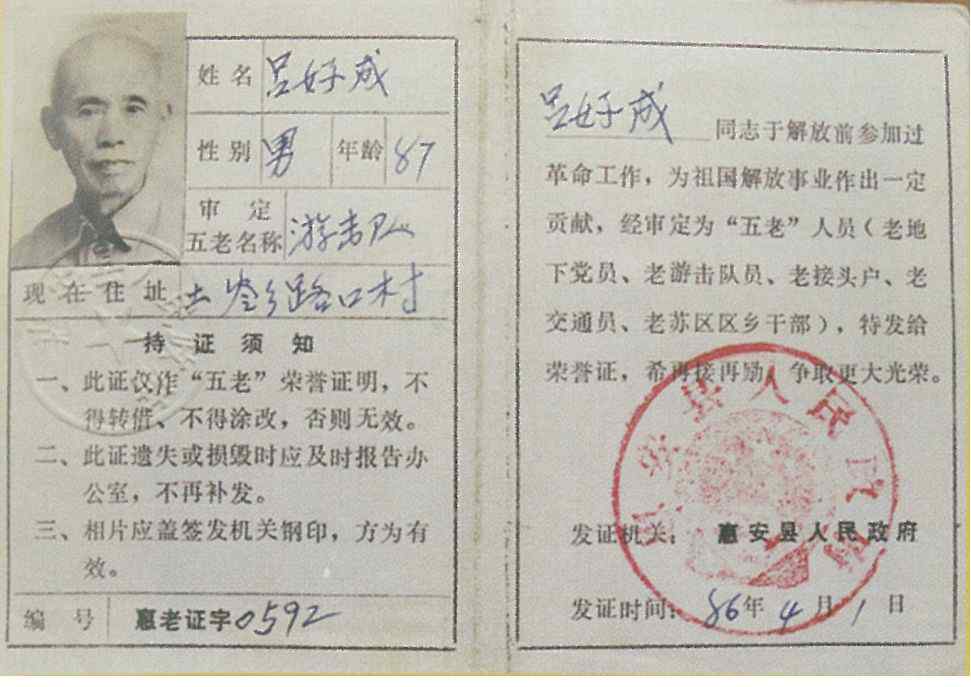 姓名 吕好成
性别 男 年龄 87
审定
五老名称 游击队
现在住址 土岺乡路口村
持证须知
一、此证仅作“五老”荣誉证明，不
得转借、不得涂改，否则无效。
二、此证遗失或损毁时应及时报告办
公室，不再补发。
三、相片应盖签发机关钢印，方为有
效。
编号 惠老证字0592
吕好成 同志于解放前参加过
革命工作，为祖国解放事业作出一定
贡献，经审定为“五老”人员（老地
下党员、老游击队员、老接头户、老
交通员、老苏区区乡干部），特发给
荣誉证，希再接再励，争取更大光荣。
县人民政府
发证机关：惠安县人民政府
发证时间：86年4月1日